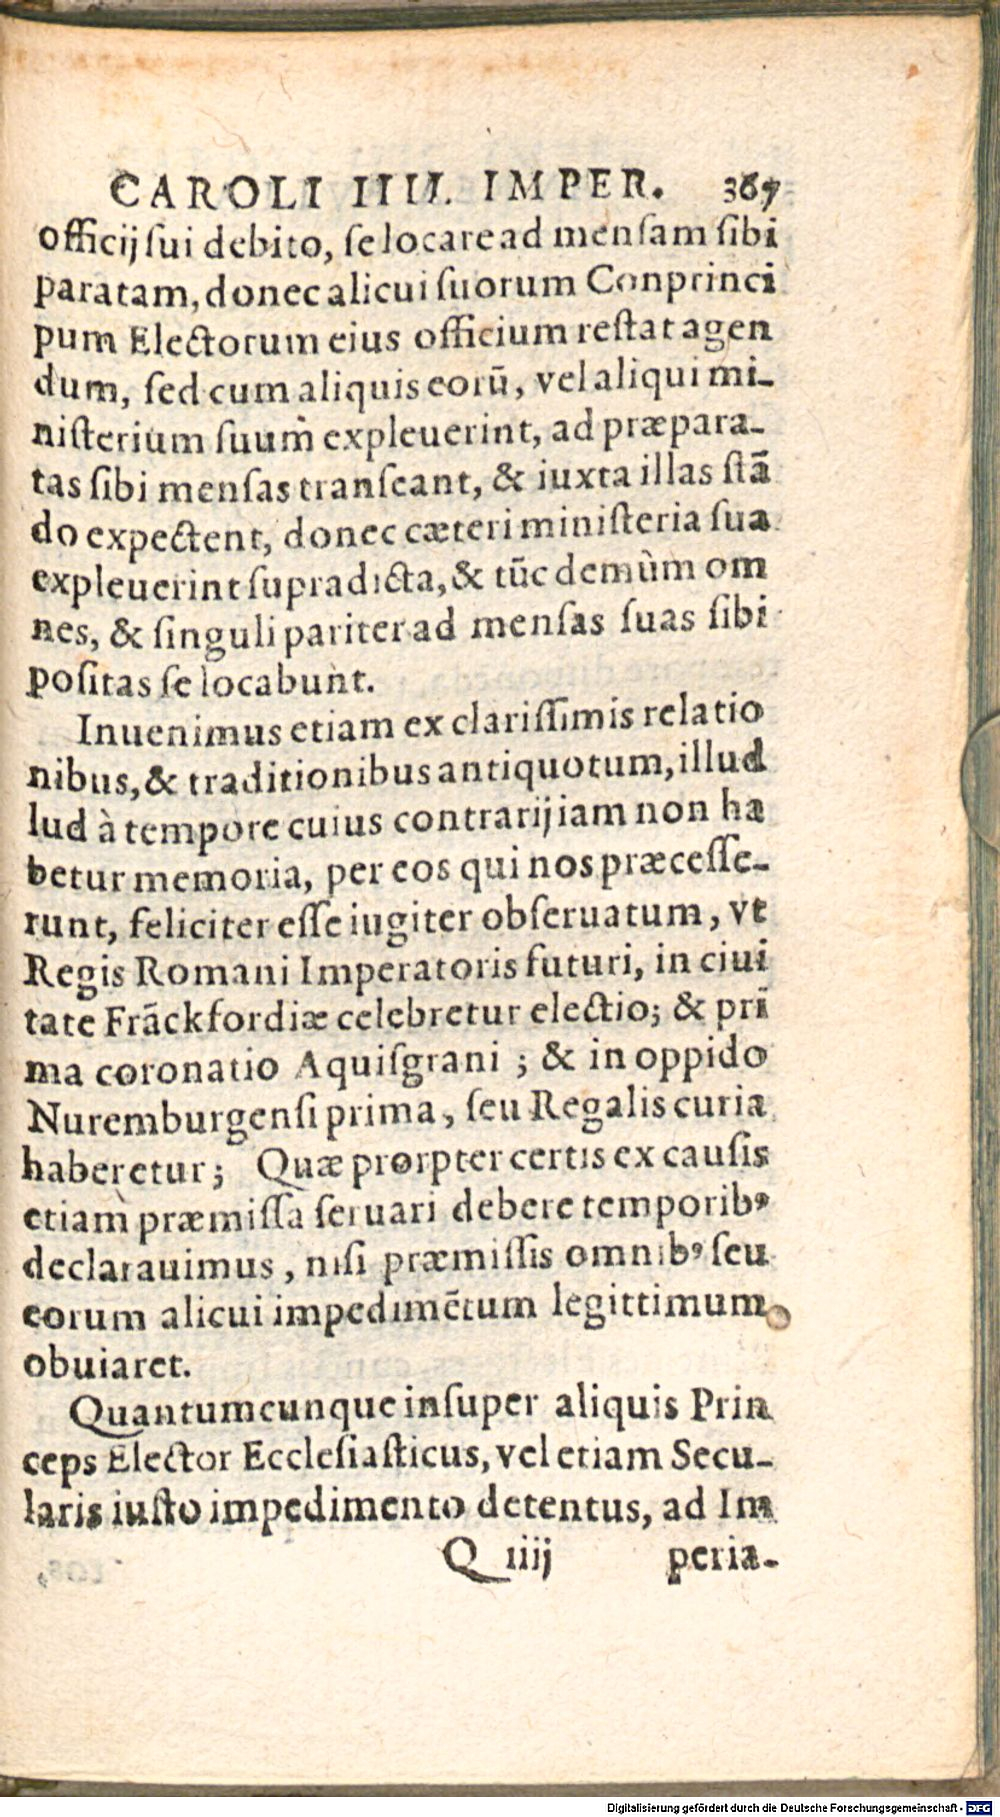 CAROLI IIII. IMPER. 367
officij sui debito, se locare ad mensam sibi
paratam, donec alicui suorum Conprinci
pum Electorum eius officium restat agen
dum, sed cum aliquis eorū, vel aliqui mi-
nisterium suum expleuerint, ad præpara-
tas sibi mensas transeant, & iuxta illas stā
do expectent, donec cæteri ministeria sua
expleuerint supradicta, & tūc demùm om
nes, & singuli pariter ad mensas suas sibi
positas se locabunt.
Inuenimus etiam ex clarissimis relatio
nibus, & traditionibus antiquotum, illud
lud à tempore cuius contrarij iam non ha
betur memoria, per eos qui nos præcesse-
runt, feliciter esse iugiter obseruatum, vt
Regis Romani Imperatoris futuri, in ciui
tate Frāckfordiæ celebretur electio; & pri
ma coronatio Aquisgrani ; & in oppido
Nuremburgensi prima, seu Regalis curia
haberetur; Quæ prorpter certis ex causis
etiam præmissa seruari debere temporibꝰ
declarauimus, nisi præmissis omnibꝰ seu
eorum alicui impedimētum legittimum
obuiaret.
Quantumcunque insuper aliquis Prin
ceps Elector Ecclesiasticus, vel etiam Secu-
laris iusto impedimento detentus, ad Im
Q iiij peria-
Digitalisierung gefördert durch die Deutsche Forschungsgemeinschaft - DFG